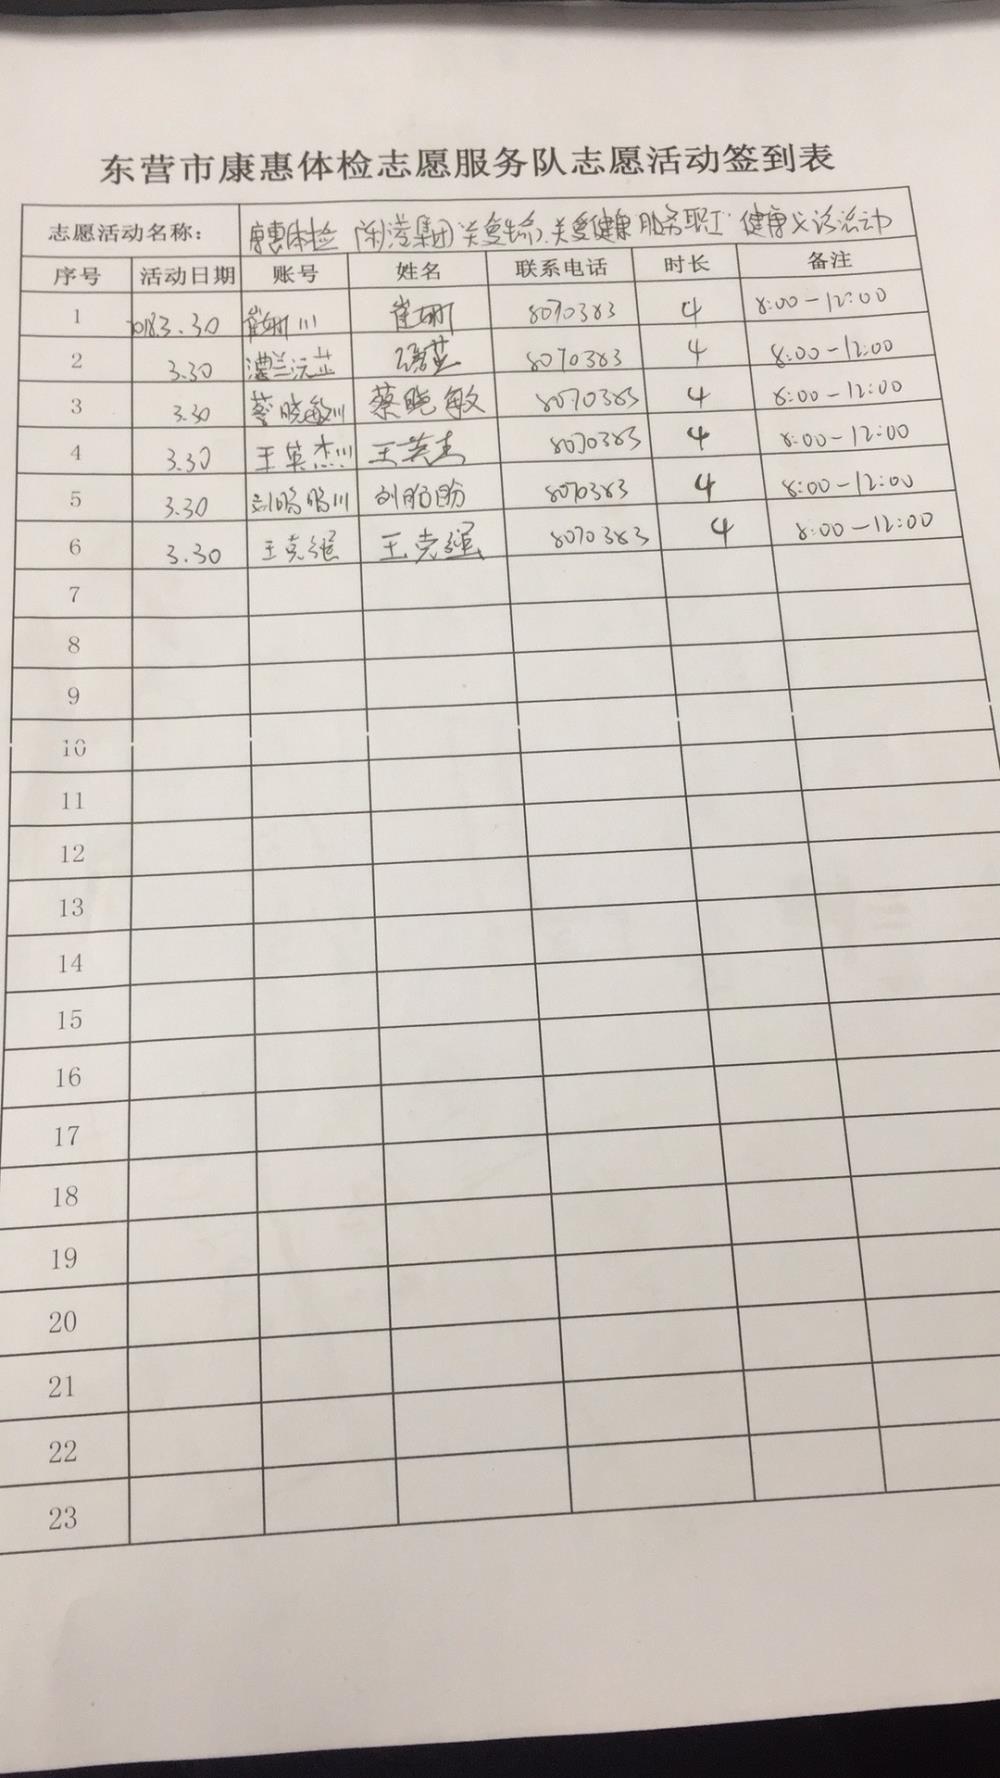 东营市康惠体检志愿服务队志愿活动签到表
志愿活动名称： 康惠体检 集团 关爱健康 服务职工 健康义诊活动
序号 活动日期 账号 姓名 联系电话 时长 备注
1 2018.3.30 崔珊川 崔珊 8070383 4 8:00-12:00
2 3.30 8070383 4 8:00-12:00
3 3.30 蔡晓敏川 蔡晓敏 8070383 4 8:00-12:00
4 3.30 王英杰川 王英杰 8070383 4 8:00-12:00
5 3.30 刘盼盼川 刘盼盼 8070383 4 8:00-12:00
6 3.30 王克强 王克强 8070383 4 8:00-12:00
7
8
9
10
11
12
13
14
15
16
17
18
19
20
21
22
23